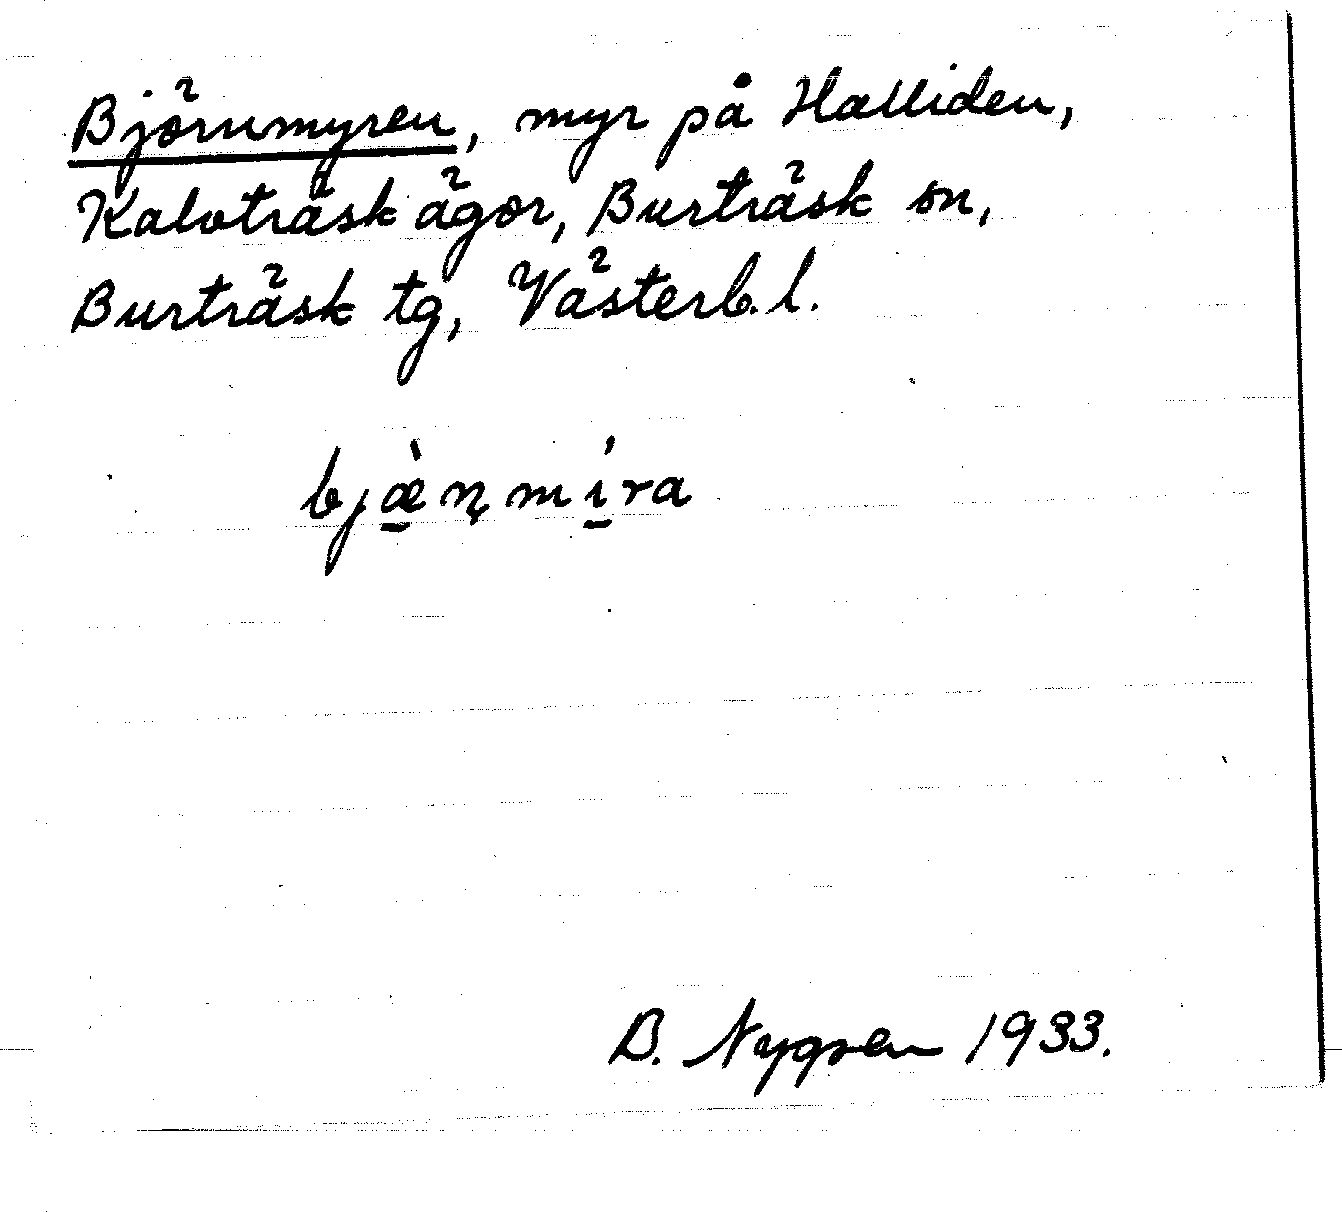 Björnmyren, myr på Halliden,
Kalvträsk ägor, Burträsk sn,
Burträsk tg, Västerb. l.
bjæ̱̀ṇmí̱ra
B. Nygren 1933.